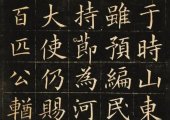 于時山東
雖預編民
持莭為河
大使仍賜
百匹公輶